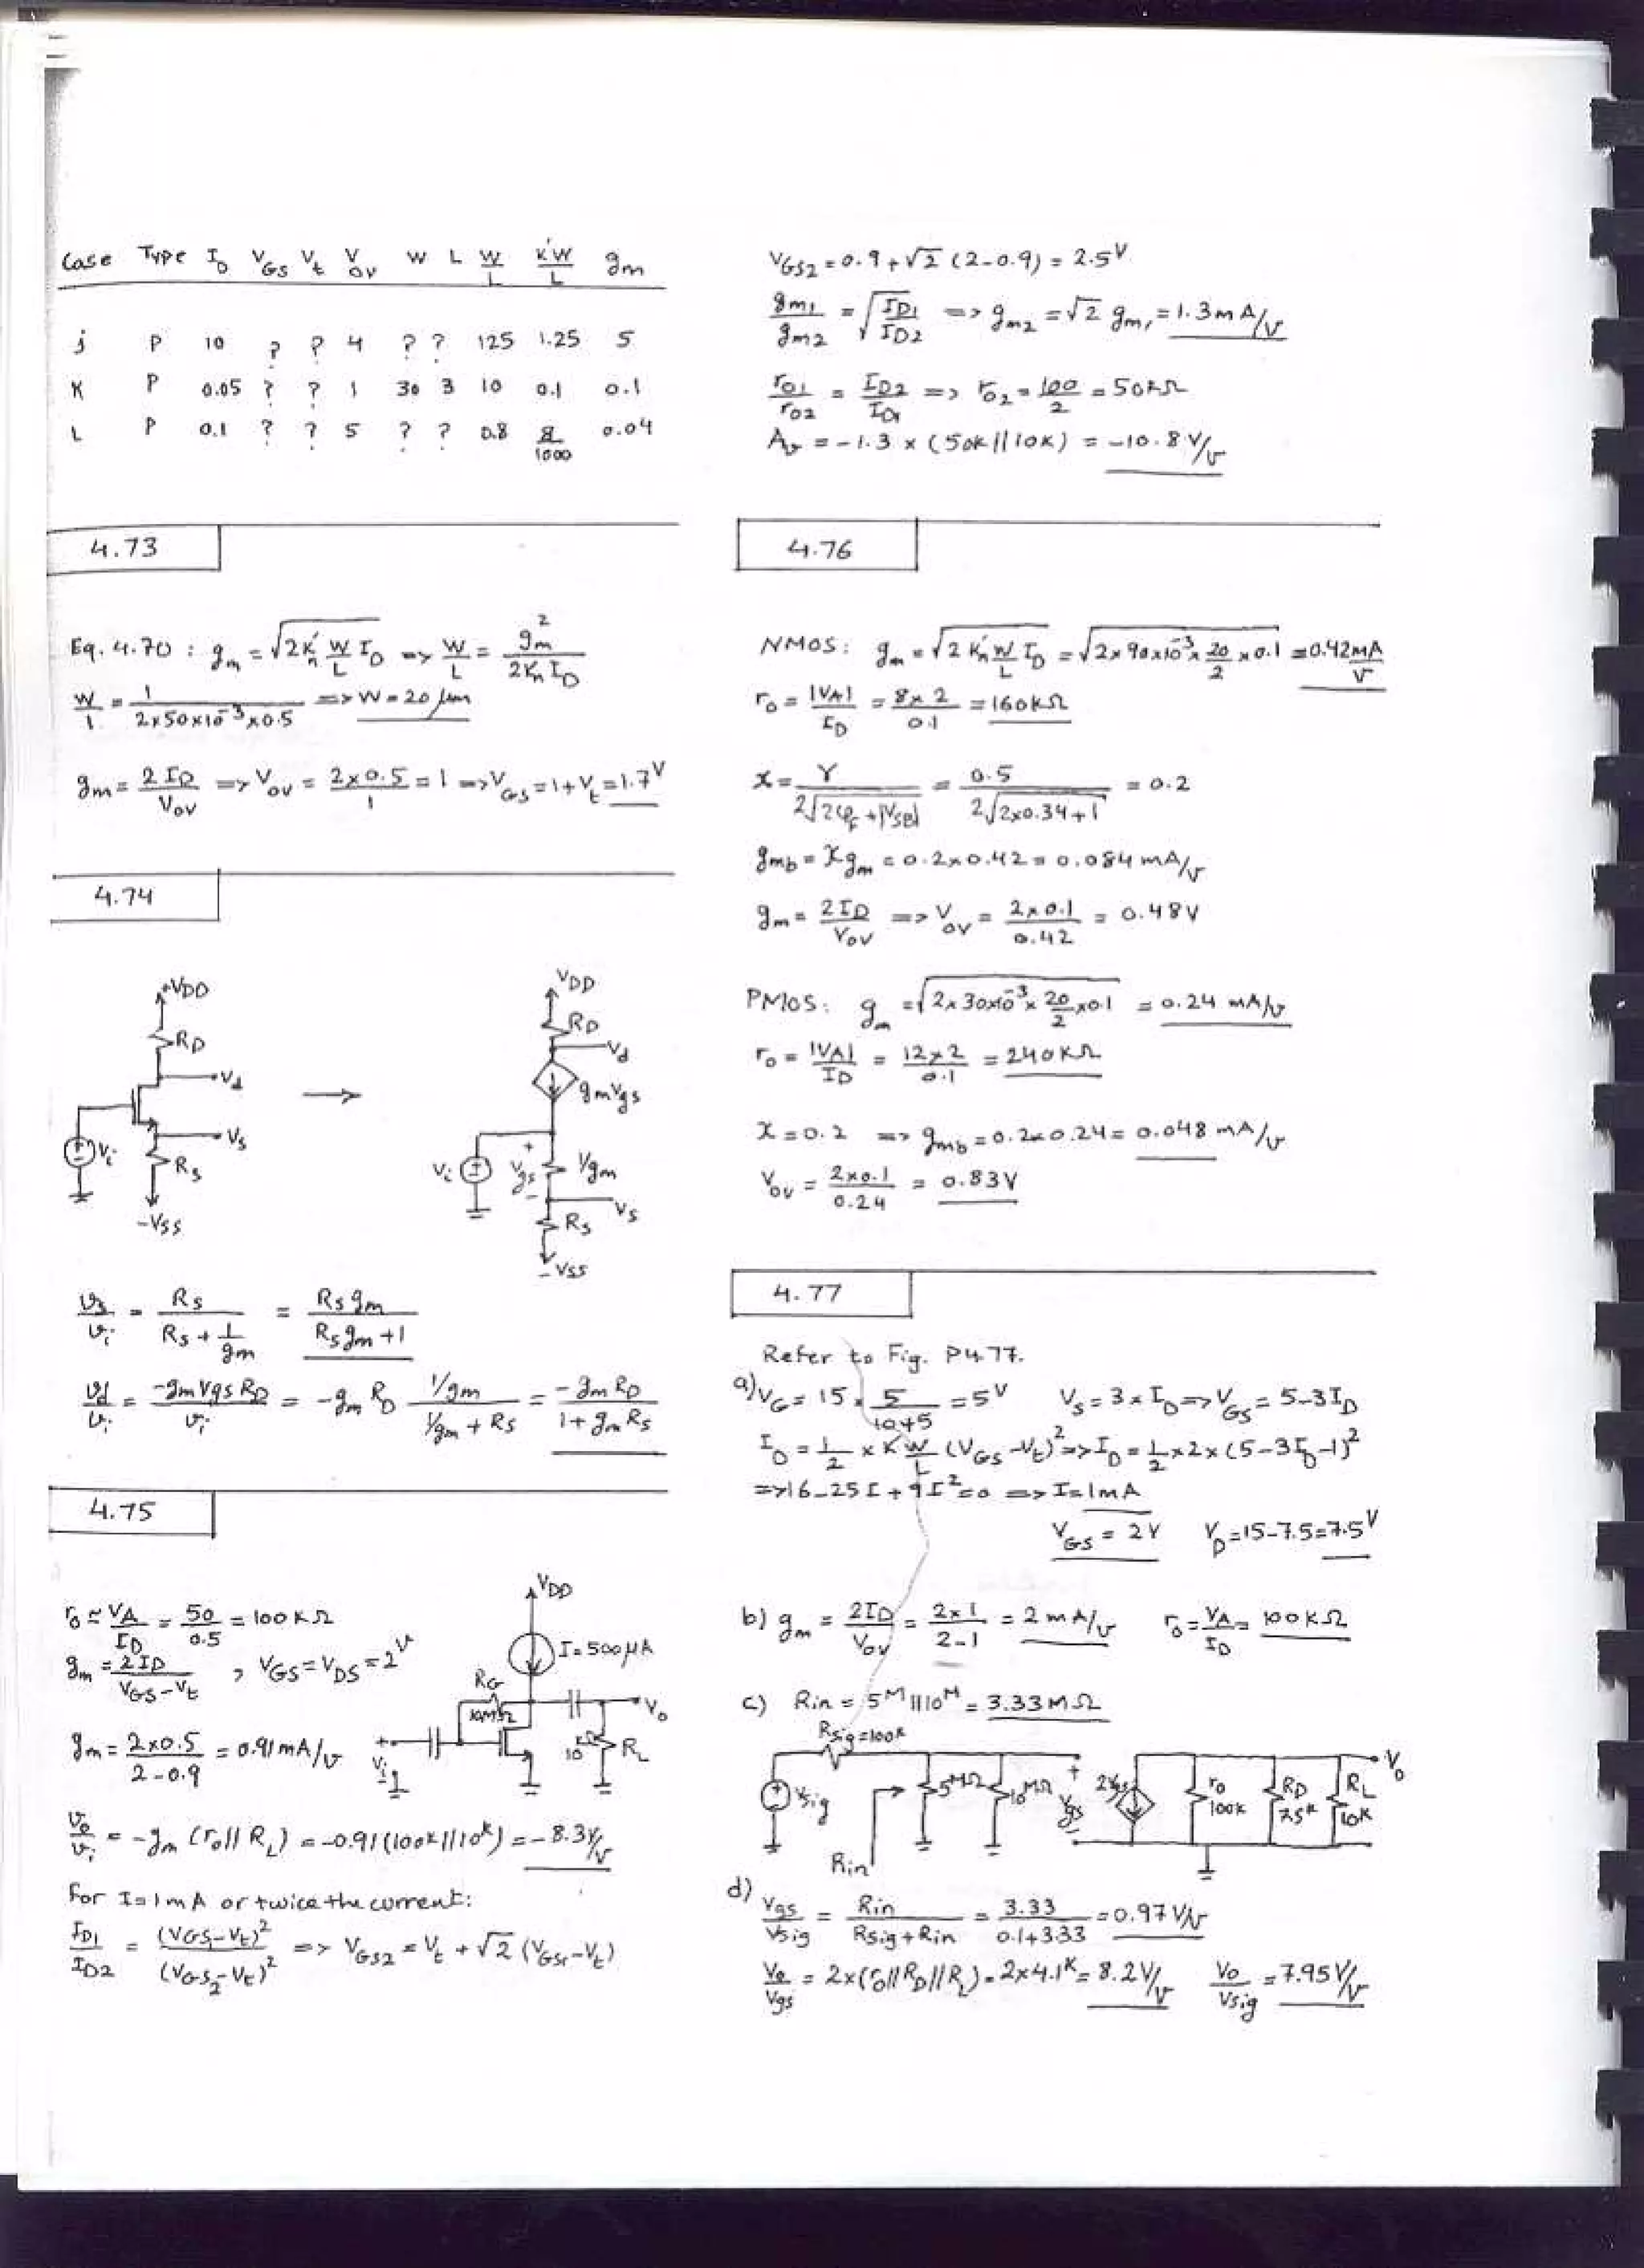 Case Type I_D V_GS V_t V_OV W L W/L K'W/L g_m
j P 10 ? ? 4 ? ? 125 1.25 5
K P 0.05 ? ? 1 30 3 10 0.1 0.1
L P 0.1 ? ? 5 ? ? 0.8 8/1000 0.04
4.73
Eq. 4.70 : g_m = √(2K'_n W/L I_D) => W/L = g_m²/(2K'_n I_D)
W/1 = 1/(2×50×10⁻³×0.5) => W = 20 μm
g_m = 2I_D/V_OV => V_OV = (2×0.5)/1 = 1 => V_GS = 1+V_t = 1.7V
4.74
+VDD
R_D
V_d
V_i
V_s
R_S
-VSS
VDD
R_D
V_d
g_m V_gs
V_i + V_gs - 1/g_m
V_s
R_S
-VSS
v_s/v_i = R_S/(R_S + 1/g_m) = R_S g_m/(R_S g_m + 1)
v_d/v_i = -g_m V_gs R_D/v_i = -g_m R_D (1/g_m)/(1/g_m + R_S) = -g_m R_D/(1 + g_m R_S)
4.75
r_o ≃ V_A/I_D = 50/0.5 = 100KΩ
g_m = 2I_D/(V_GS-V_t) , V_GS = V_DS = 2V
g_m = (2×0.5)/(2-0.9) = 0.91mA/v
VDD
I=500μA
R_G
10MΩ
V_o
10KΩ R_L
V_i
v_o/v_i = -g_m (r_o // R_L) = -0.91(100K//10K) = -8.3V/v
For I=1mA or twice the current:
I_D1/I_D2 = (V_GS1-V_t)²/(V_GS2-V_t)² => V_GS2 = V_t + √2 (V_GS1-V_t)
V_GS2 = 0.9+√2 (2-0.9) = 2.5V
g_m1/g_m2 = √(I_D1/I_D2) => g_m2 = √2 g_m1 = 1.3mA/v
r_o1/r_o2 = I_D2/I_D1 => r_o2 = 100/2 = 50KΩ
A_v = -1.3 × (50K//10K) = -10.8 V/v
4.76
NMOS: g_m = √(2K'_n W/L I_D) = √(2×90×10⁻³×20/2×0.1) = 0.42mA/v
r_o = |V_A|/I_D = (8×2)/0.1 = 160KΩ
χ = γ/(2√(2φ_F+|V_SB|)) = 0.5/(2√(2×0.34+1)) = 0.2
g_mb = χg_m = 0.2×0.42 = 0.084 mA/v
g_m = 2I_D/V_OV => V_OV = (2×0.1)/0.42 = 0.48V
PMOS: g_m = √(2×30×10⁻³×20/2×0.1) = 0.24 mA/v
r_o = |V_A|/I_D = (12×2)/0.1 = 240KΩ
χ = 0.2 => g_mb = 0.2×0.24 = 0.048 mA/v
V_OV = (2×0.1)/0.24 = 0.83V
4.77
Refer to Fig. P4.77.
a) V_G = 15 × 5/(10+5) = 5V V_S = 3×I_D => V_GS = 5-3I_D
I_D = 1/2 × K'W/L (V_GS-V_t)² => I_D = 1/2×2×(5-3I_D-1)²
=> 16-25I+9I²=0 => I=1mA
V_GS = 2V V_D = 15-7.5 = 7.5V
b) g_m = 2I_D/V_OV = (2×1)/(2-1) = 2mA/v r_o = V_A/I_D = 100KΩ
c) Rin = 5M//10M = 3.33MΩ
Rsig=100K
Vsig 5MΩ 10MΩ + Vgs - 2Vgs r_o 100K R_D 7.5K R_L 10K V_o
Rin
d) Vgs/Vsig = Rin/(Rsig+Rin) = 3.33/(0.1+3.33) = 0.97 V/v
V_o/Vgs = 2×(r_o//R_D//R_L) = 2×4.1K = 8.2V/v V_o/Vsig = 7.95V/v